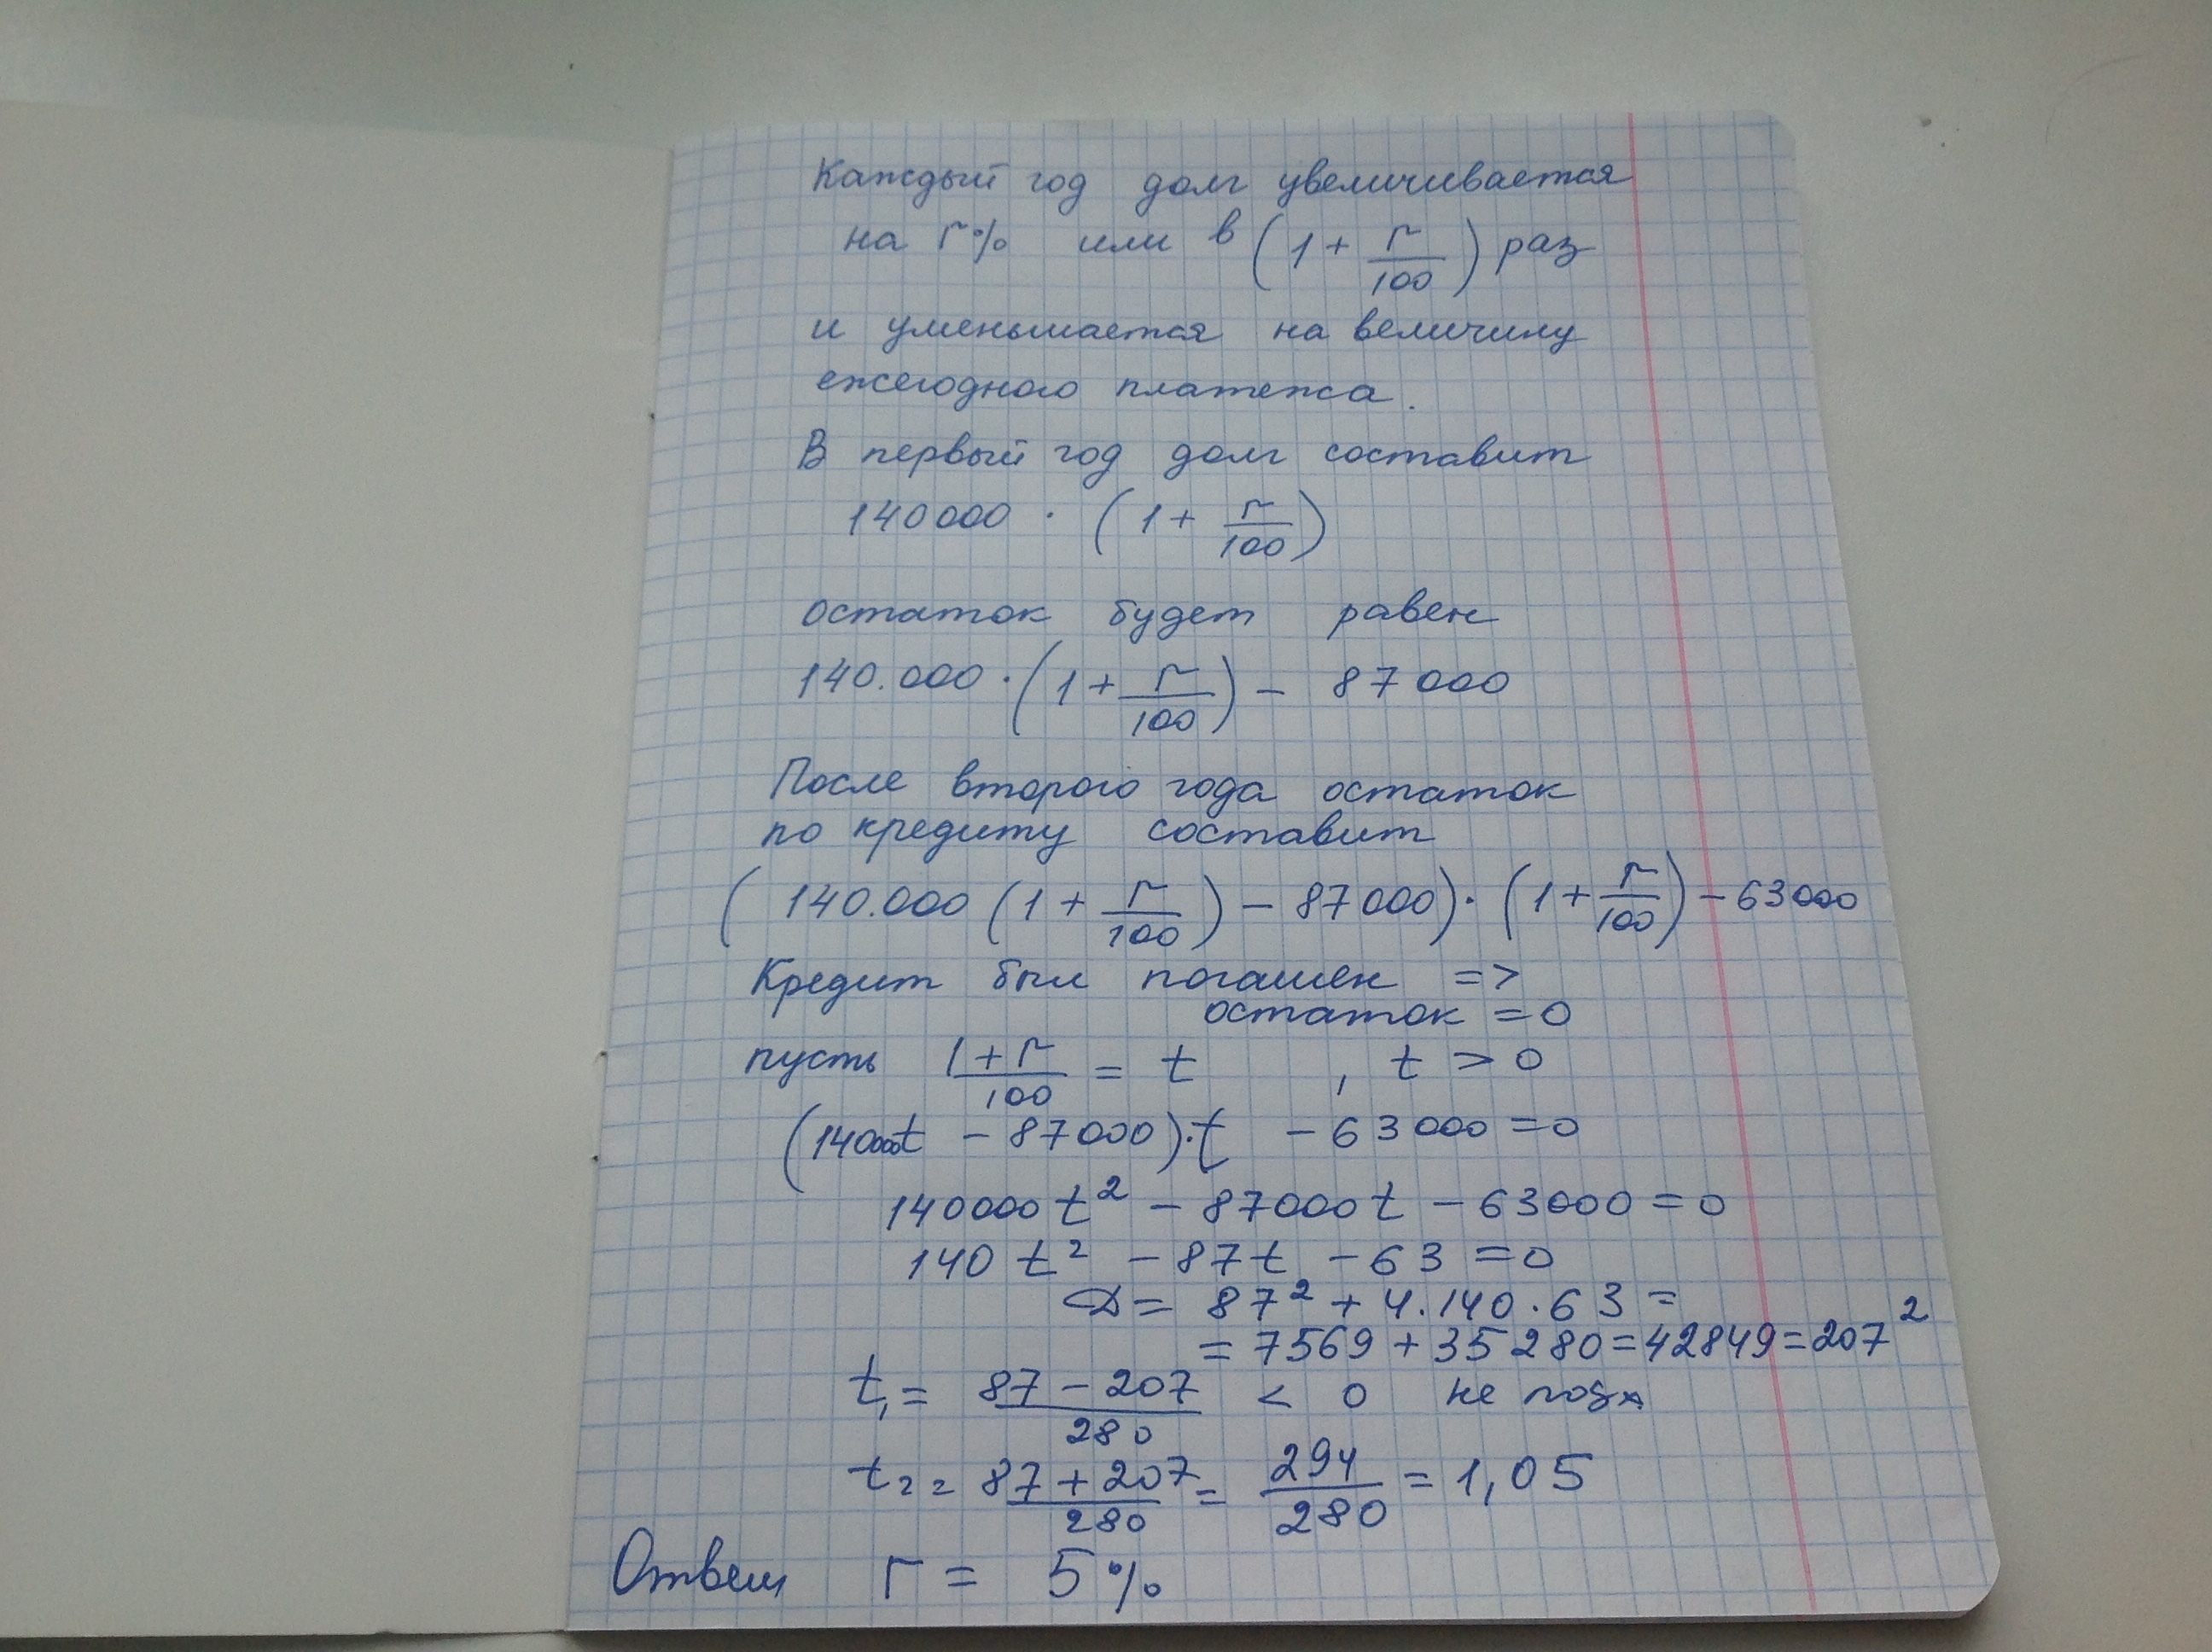 Каждый год долг увеличивается
на r% или в (1 + r/100) раз
и уменьшается на величину
ежегодного платежа.
В первый год долг составит
140000 · (1 + r/100)
остаток будет равен
140.000 · (1 + r/100) - 87000
После второго года остаток
по кредиту составит
(140.000 (1 + r/100) - 87000) · (1 + r/100) - 63000
Кредит был погашен =>
остаток = 0
пусть (1 + r)/100 = t , t > 0
(140000t - 87000) · t - 63000 = 0
140000t² - 87000t - 63000 = 0
140t² - 87t - 63 = 0
D = 87² + 4.140.63 =
= 7569 + 35280 = 42849 = 207²
t₁ = (87 - 207)/280 < 0 не подх
t₂ = (87 + 207)/280 = 294/280 = 1,05
Ответ r = 5%